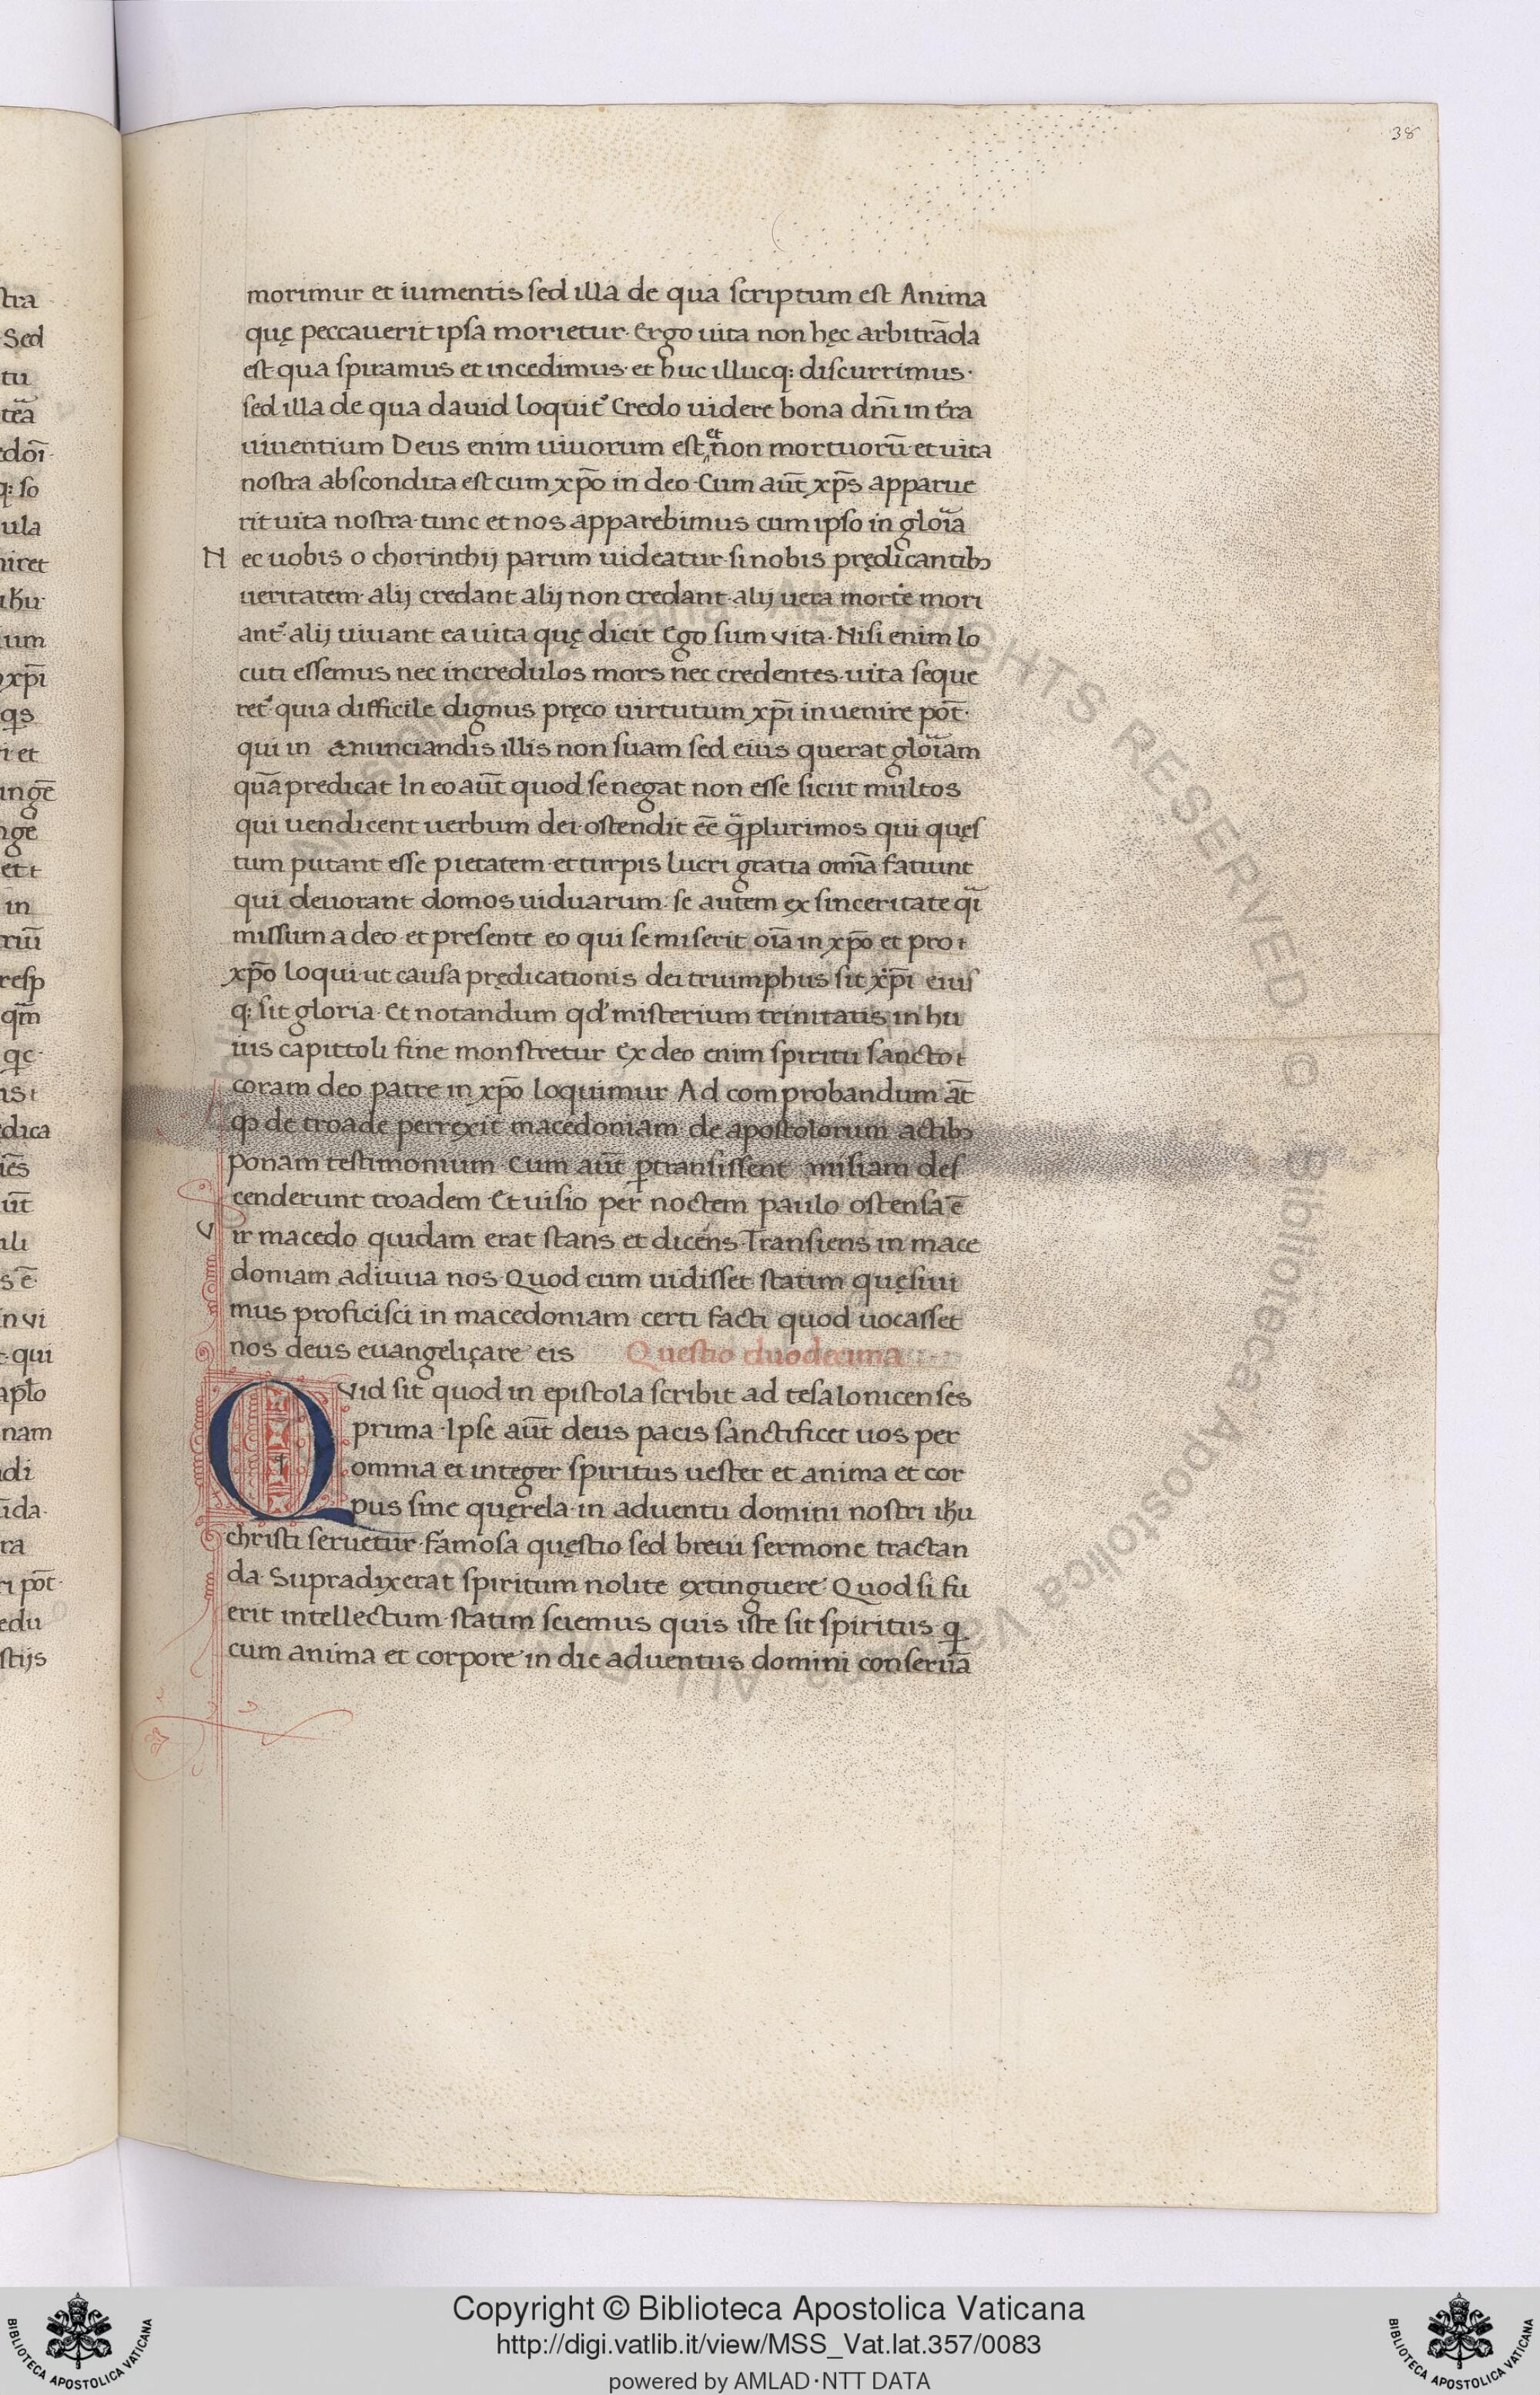 38
morimur et iumentis sed illa de qua scriptum est Anima
quę peccauerit ipsa morietur· Ergo uita non hęc arbitrāda
est qua spiramus et incedimus· et huc illucq: discurrimus·
sed illa de qua dauid loquit᷒ Credo uidere bona dn̄i in t̄ra
uiuentium Deus enim uiuorum est et non mortuorū et uita
nostra abscondita est cum xp̄o in deo· Cum aūt xp̄s apparue
rit uita nostra· tunc et nos apparebimus cum ipso in glōia
Nec uobis o chorinthij parum uideatur· si nobis prędicantibꝫ
ueritatem· alij credant alij non credant· alij uera morte mori
ant᷒ alij uiuant ea uita quę dicit Ego sum vita· Nisi enim lo
cuti essemus nec incredulos mors nec credentes uita seque
ret᷒ quia difficile dignus pręco uirtutum xp̄i inuenire pōt·
qui in anunciandis illis non suam sed eius querat glōiam
quā predicat In eo aūt quod se negat non esse sicut multos
qui uendicent uerbum dei· ostendit eē q̄plurimos qui quęs
tum putant esse pietatem· et turpis lucri gratia omīa fatiunt
qui deuorant domos uiduarum· se autem ex sinceritate q̄i
missum a deo· et presente eo qui se miserit oīa in xp̄o et pro
xp̄o loqui· ut causa prędicationis dei triumphus sit xp̄i eius
q: sit gloria· Et notandum qd᷒ misterium trinitatis in hu
ius capittoli fine monstretur Ex deo enim spiritu sancto
coram deo patre in xp̄o loquimur Ad comprobandum āt
ꝙ de troade perrexit macedoniam· de apostolorum actibꝫ
ponam testimonium· Cum aūt ꝑtransissent misiam des
cenderunt troadem Et uisio per noctem paulo ostensa ē
Vir macedo quidam erat stans et dicens· Transiens in mace
doniam adiuua nos· Quod cum uidisset statim quęsiui
mus proficisci in macedoniam certi facti quod uocasset
nos deus euangeliçare eis Questio duodecima
Qvid sit quod in epistola scribit ad tesalonicenses
prima· Ipse aūt deus pacis sanctificet uos per
omnia et integer spiritus uester et anima et cor
pus sine quęrela· in aduentu domini nostri ihu
christi seruetur· famosa quęstio sed breui sermone tractan
da· Supradixerat spiritum nolite extinguere Quod si fu
erit intellectum· statim sciemus quis iste sit spiritus q̄
cum anima et corpore in die aduentus domini conseruā
Copyright © Biblioteca Apostolica Vaticana
http://digi.vatlib.it/view/MSS_Vat.lat.357/0083
powered by AMLAD·NTT DATA